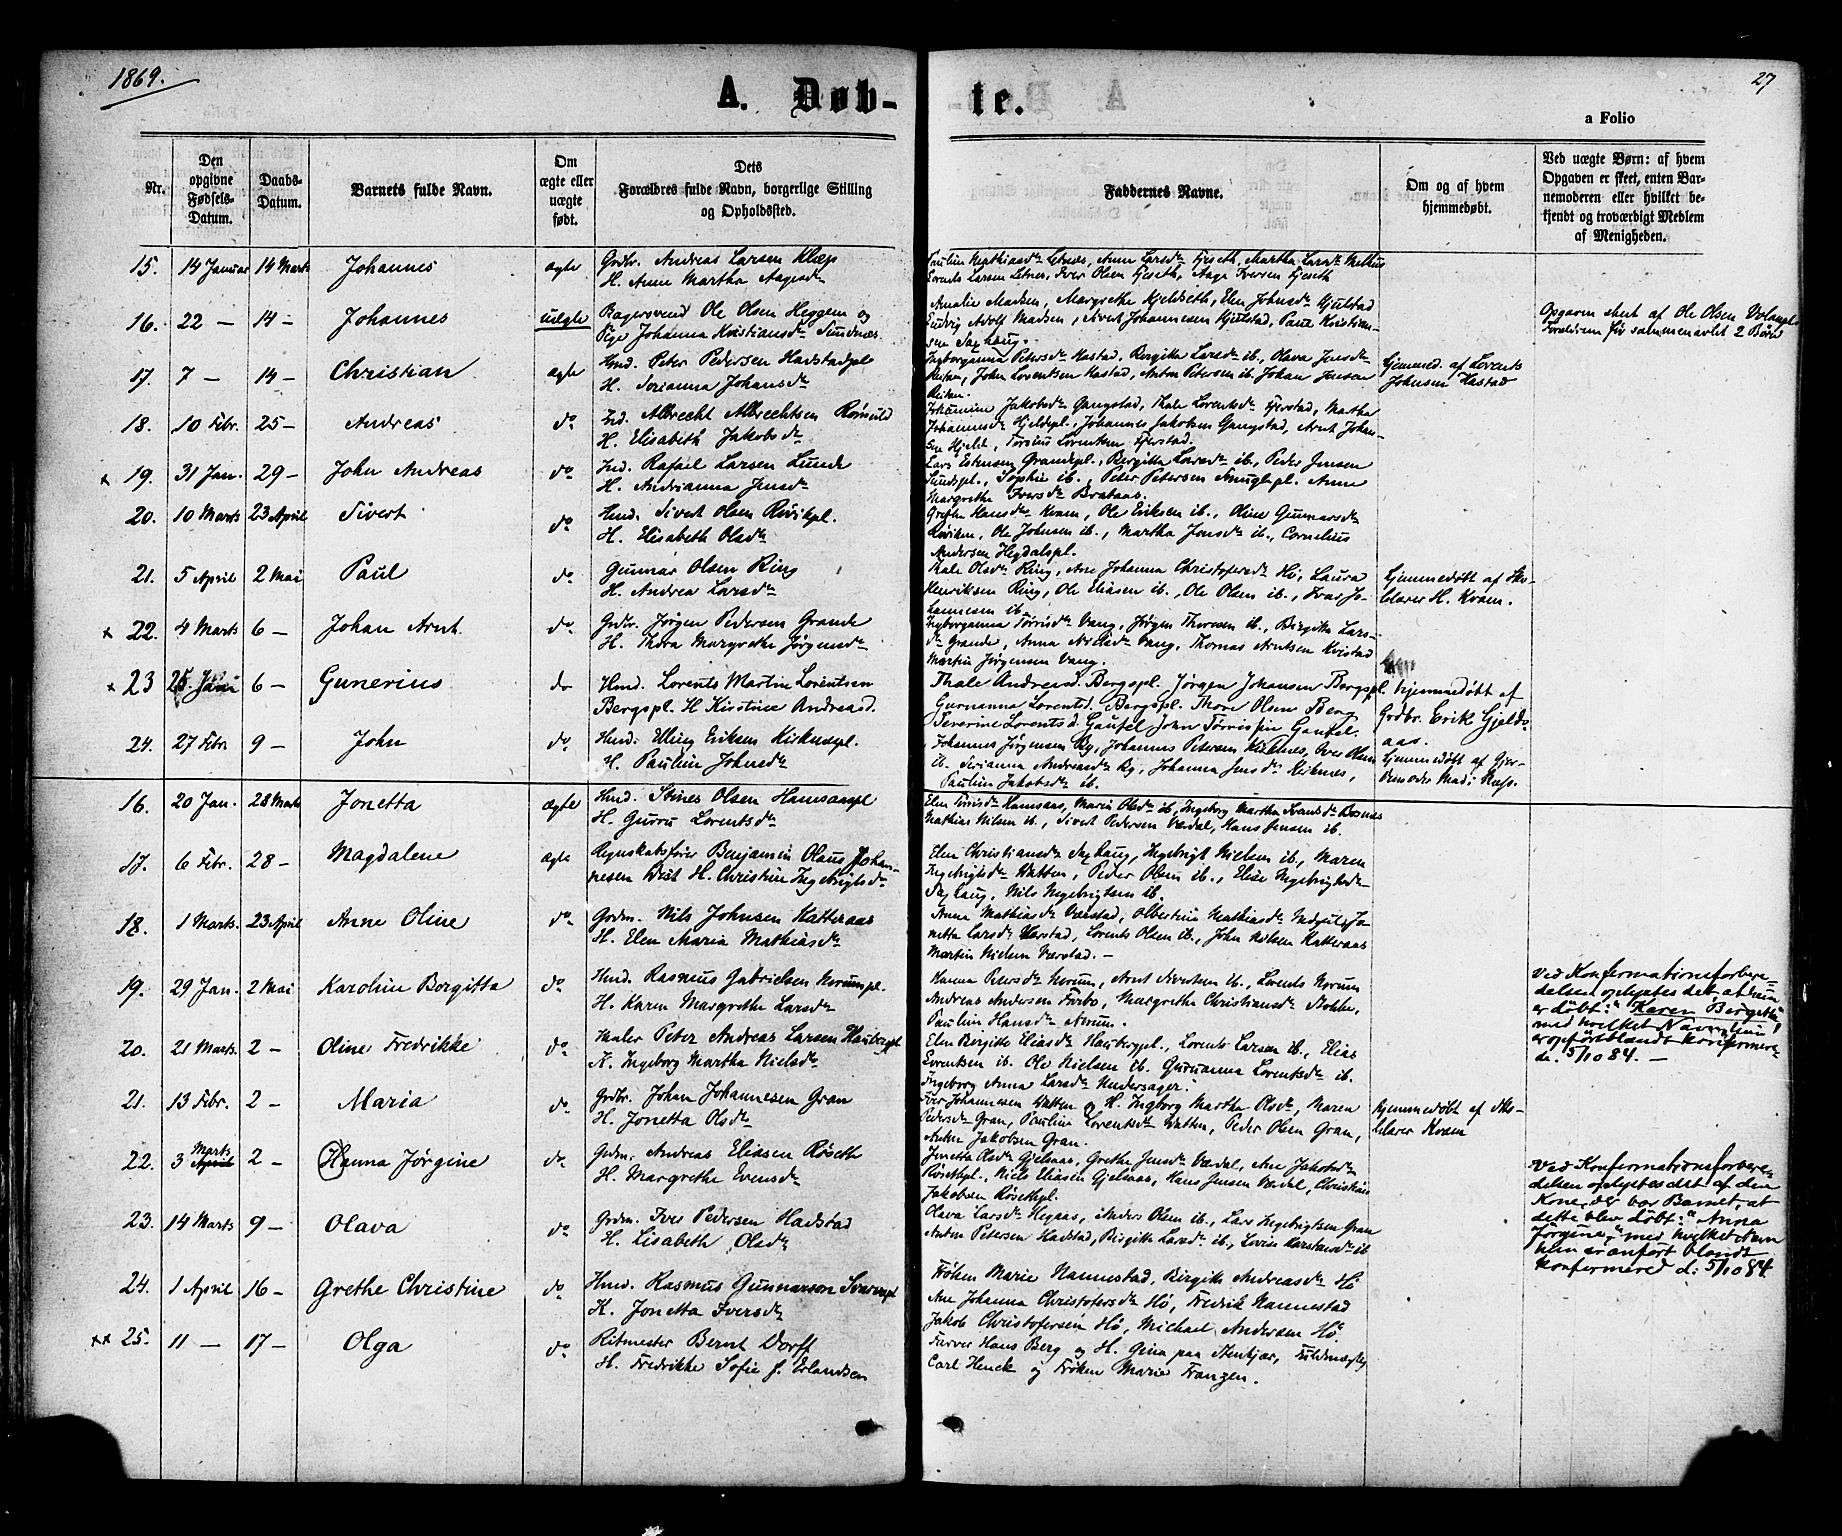 1869.
27
A. Døb-
te.
a Folio
Nr.
Den opgivne Fødsels-Datum.
Daabs-Datum.
Barnets fulde Navn.
Om ægte eller uægte født.
Dets Forældres fulde Navn, borgerlige Stilling og Opholdssted.
Faddernes Navne.
Om og af hvem hjemmedøbt.
Ved uægte Børn: af hvem Opgaven er skeet, enten Barnemoderen eller hvilket bekjendt og troværdigt Medlem af Menigheden.
15. 14 Januar 14 Marts Johannes ægte Grdbr. Andreas Larsen Klæp
H. Anne Martha Aagesdr
Anne Larsdr Fjeseth, Martha Larsdr
Lorents Larsen Letnes, Iver Olsen Fjeseth, Aage Iversen Fjeseth
16. 22 — 14 — Johannes uægte Bagersvend Ole Olsen Heggem og
Pige Johanna Kristiansdr Sundnæs
Amalie Madsen, Margrethe Kjeldseth, Elen Johnsdr Hjulstad
Ludvig Adolf Madsen, Sivert Johannesen Hjulstad, Paul Kristian-
sen Saxhaug.
Opgaven skeet af Ole Olsen
Forældrene før sammenavlet 2 Børn
17. 7 — 14 — Christian ægte Hmd. Peter Pedersen Hadstadpl
H. Serianna Johansdr
Ingboranna Petersdr Hastad, Bergitta Larsdr ib., Olava Jensdr
John Lorentsen Hastad, Anton Petersen ib. Johan Jensen
Hjemmed. af Lorents
Johnsen Hastad
18. 10 Febr. 25 — Andreas do Ind. Albrecht Albrechtsen
H. Elisabeth Jakobsdr
Jakobsdr Gangstad, Thale Lorentsdr Fjerstad, Martha
Johannesdr Hjeldepl., Johannes Jakobsen Gangstad, Arnt Johan-
sen Hjeldt, Lorentsen Fjerstad.
x 19. 31 Jan. 29 — John Andreas do Ind. Rafael Larsen Lunde
H. Andrianna Jensdr
Lars Estensen Grandepl., Bergitta Larsdr ib., Peder Jensen
Sundspl., Sophie ib., Peter Petersen Anne
Margrethe Iversdr Brataas.
20. 10 Marts 23 April Sivert do Hmd. Sivert Olsen Røvikpl.
H. Elisabeth Olsdr
Grethe Hansdr Kvam, Ole Eriksen ib., Oline Gunnarsdr
Røviken, Ole Johnsen ib., Martha Jensdr ib., Cornelius
Andersen Hegdalspl.
21. 5 April 2 Mai Paul do Gunnar Olsen Ring
H. Andrea Larsdr
Thale Olsdr Ring, Ane Johanna Christofersdr Hó, Laura
Henriksen Ring, Ole Eliasen ib., Ole Olsen ib., Ivar Jo-
hannesen ib.
Hjemmedøbt af Sko-
lelærer H. Kvam.
x 22. 4 Marts 6 — Johan Arnt. do Grdbr. Jørgen Pedersen Grande
H. Thora Margrethe Jørgensdr
Ingboranna Vang, Jørgen Thoresen ib., Birgitta Lars-
dr Grande, Anna Vang, Thomas Arntsen Kvistad
Martin Jørgensen Vang.
x 23 25. Jan 6 — Gunerius do Hmd. Lorents Martin Lorentsen
Bergspl. H Kirstine Andreasd.
Thale Andreasd. Bergspl. Jørgen Johansen Bergspl.
Gurnanna Lorentsd. Bergspl. Thore Olsen Berg
Severine Lorentsd. Gaufel John Gaufel.
Hjemmedøbt af
Grdbr. Erik Gjelds-
aas.
24. 27 Febr. 9 — John do Hmd. Elling Eriksen Kirknespl.
H. Pauline Johnsdr
Johannes Jørgensen By, Johannes Petersen Kirknes, Iver Olsen
ib. Serianna Andreasdr By, Johanna Jensdr Kirknes,
Pauline Jakobsdr ib.
Hjemmedøbt af Gjor-
demoder Mad:
16. 20 Jan. 28 Marts Jonetta ægte Hmd. Stines Olsen Hamsaaspl
H. Gurru Lorentsdr
Elen Hamsaas, Maria Olsdr ib., Ingeborg Martha
Mathias Nilsen ib., Sivert Pedersen Værdal, Hans Jensen ib.
17. 6 Febr. 28 — Magdalene ægte Regnskabsfører Benjamin Olaus Johan-
nesen West H. Christine Ingebrigtsdr
Elen Christiansdr Saxhaug, Ingebrigt Nielsen ib., Maren
Ingebrigtsdr Watten, Peder Olsen ib., Elise Ingebrigtsdr
Saxhaug, Nils Ingebrigtsen ib.
18. 1 Marts. 23 April Anne Oline do Grdm. Nils Johnsen Katteraas
H. Elen Maria Mathiasdr
Anna Mathiasdr Værstad, Olbertina Mathiasdr Jo-
netta Larsdr Værstad, Lorents Olsen ib., John Nilsen Katteraas
Martin Nielsen Værstad. —
19. 29 Jan. 2 Mai Karoline Bergitta do Hmd. Rasmus Gabrielsen Norumpl.
H. Karen Margrethe Larsdr
Hanna Petersdr Norum, Arnt Sivertsen ib., Lorents Norum
Andreas Andersen Forbo, Margrethe Christiansdr
Pauline Hansdr Norum.
Ved Konfermationsforbere-
delsen oplystes det, at hun
er døbt: "Karen Bergitta"
med hvilket Navn hun
er opført blandt Konfirmere-
de. 5/10 84. —
20. 21 Marts. 2 — Oline Fredrikke do Maler Peter Andreas Larsen Haubergpl
H. Ingeborg Martha Nielsdr
Elen Birgitte Eliasdr Haubergpl., Lorents Larsen ib., Elias
Lorentsen ib. Ole Nielsen ib. Gurianna Lorentsdr ib.
Ingeborg Anna Larsdr
21. 13 Febr. 2 — Maria do Grdbr. Johan Johannesen Gran
H. Jonetta Olsdr
Iver Johannesen Watten og H. Ingborg Martha Olsdr, Maren
Pedersdr Gran, Pauline Lorentsdr Watten, Peder Olsen Gran,
Jakobsen Gran.
Hjemmedøbt af Sko-
lelærer Kvam
22. 3 Marts April 2 — Hanna Jørgine do Grdm. Andreas Eliasen Røseth
H. Margrethe Evensdr
Jonetta Olsdr Gjelsaas, Grethe Jensdr Værdal, Ane Jakobsdr
Røsethpl., Niels Eliasen Gjelsaas, Hans Jensen Værdal, Christian
Jakobsen Røsethpl.
Ved Konfermationsforbere-
delsen oplystes det af den
Kone, der bar Barnet, at
dette blev døbt: "Anna
Jørgine," med hvilket Navn
hun er anført blandt
Konfermered d. 5/10 84.
23. 14 Marts 9 — Olava do Grdm. Iver Pedersen Hadstad
H. Lisabeth Olsdr
Olava Larsdr Hegaas, Anders Olsen ib., Lars Ingebrigtsen Gran
Anton Petersen Hadstad, Birgitta Larsdr ib., Lovise Karstensdr ib
24. 1 April 16 — Grethe Christine do Hmd. Rasmus Gunnarson
K. Jonetta Iversdr
Frøken Marie Nannestad, Birgitta Andreasdr Hó
Ane Johanna Christofersdr Hó, Fredrik Nannestad
Jakob Christofersen Hó, Michael Andersen Hó.
xx 25. 11 — 17 — Olga do Ritmester Bernt Dorff
H. Fredrikke Sofie f. Erlandsen
Farver Hans Berg og H. Gina paa Stenkjær, Fuldmægtig
Carl Henck og Frøken Marie Franzen.